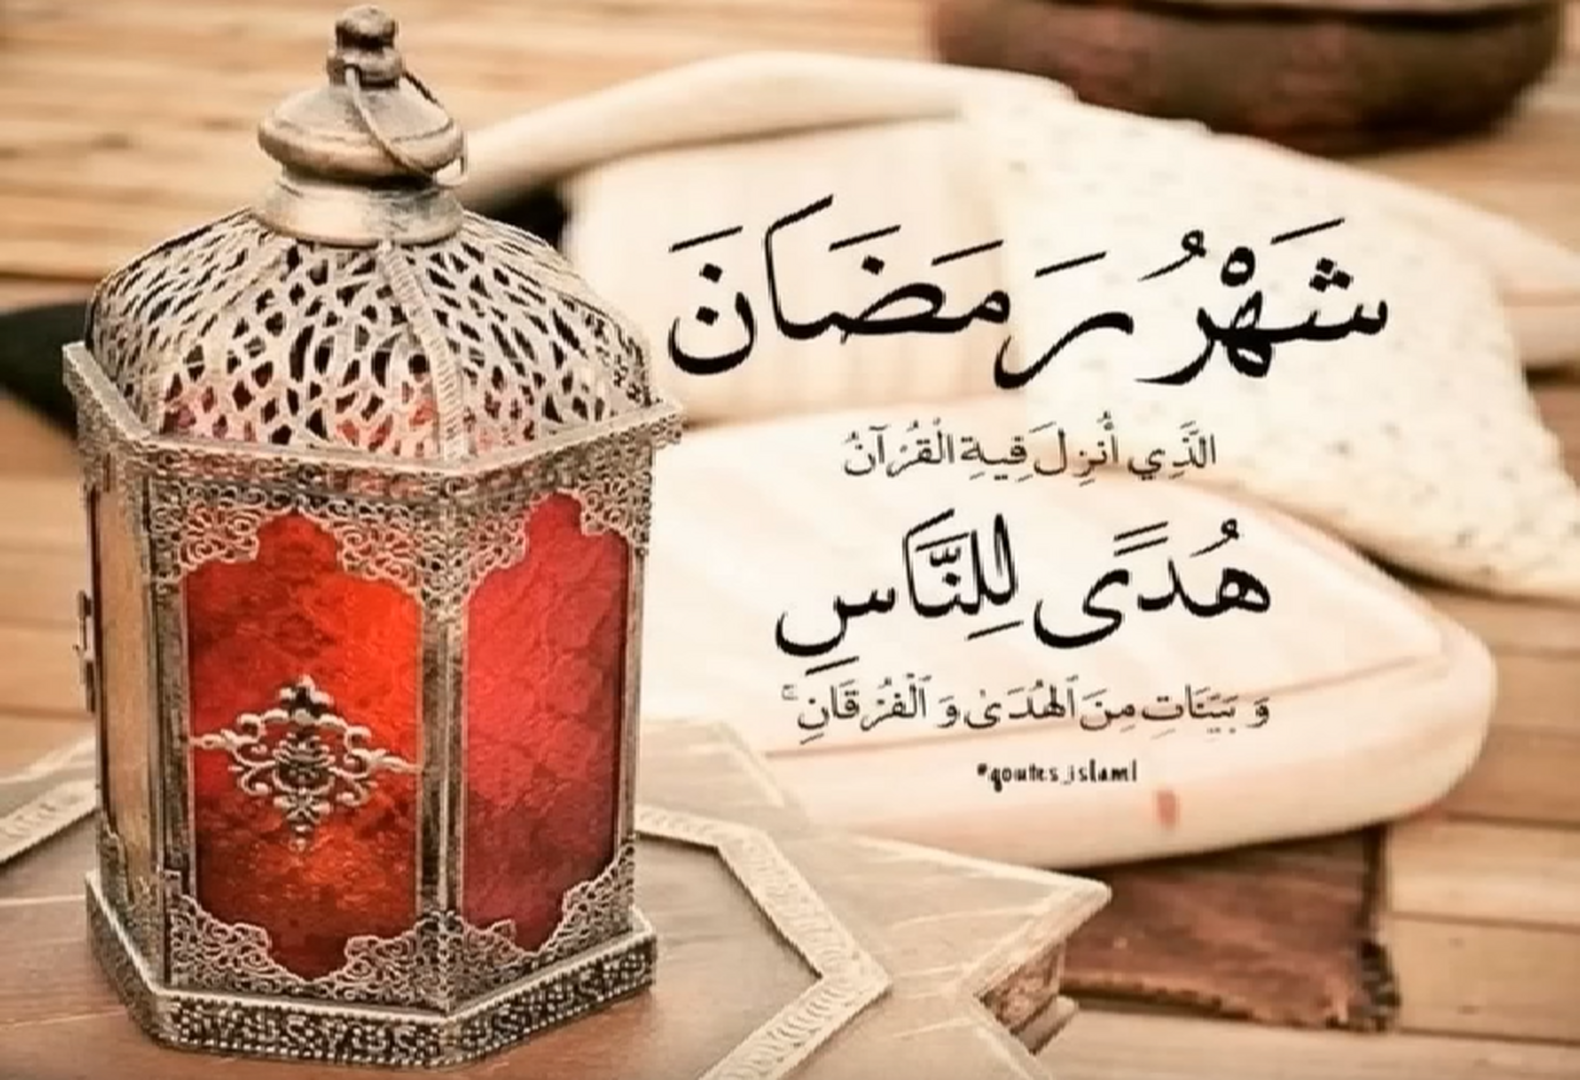 شَهْرُ رَمَضَانَ
الَّذِي أُنزِلَ فِيهِ الْقُرْآنُ
هُدًى لِلنَّاسِ
وَ بَيِّنَاتٍ مِنَ ٱلْهُدَىٰ وَ ٱلْفُرْقَانِ ۚ
*qoutes_islaml